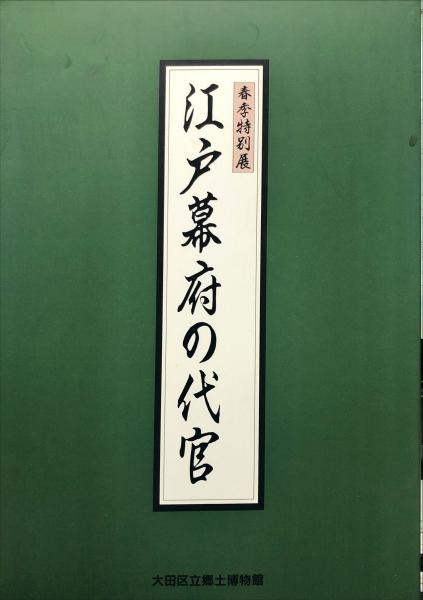 春季特別展
江戸幕府の代官
大田区立郷土博物館